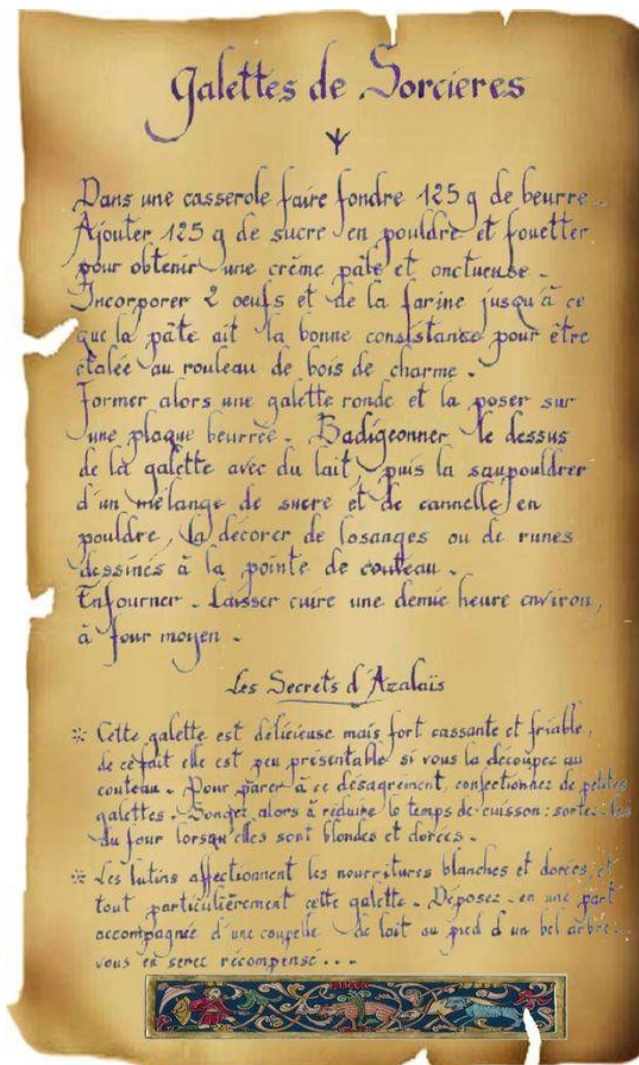 Galettes de Sorcieres
Dans une casserole faire fondre 125 g de beurre.
Ajouter 125 g de sucre en pouldre et fouetter
pour obtenir une crème pâle et onctueuse.
Incorporer 2 oeufs et de la farine jusqu'à ce
que la pâte ait la bonne consistance pour être
étalée au rouleau de bois de charme.
Former alors une galette ronde et la poser sur
une plaque beurrée. Badigeonner le dessus
de la galette avec du lait, puis la saupouldrer
d'un mélange de sucre et de cannelle en
pouldre, la décorer de losanges ou de runes
dessinés à la pointe de couteau.
Enfourner. Laisser cuire une demie heure environ,
à four moyen.
Les Secrets d'Azalaïs
* Cette galette est délicieuse mais fort cassante et friable,
de ce fait elle est peu présentable si vous la découpez au
couteau. Pour parer à ce désagrément, confectionnez de petites
galettes. Songez alors à réduire le temps de cuisson : sortez-les
du four lorsqu'elles sont blondes et dorées.
* Les lutins affectionnent les nourritures blanches et dorées, et
tout particulièrement cette galette. Déposez-en une part
accompagnée d'une coupelle de lait au pied d'un bel arbre :
vous en serez récompensé...